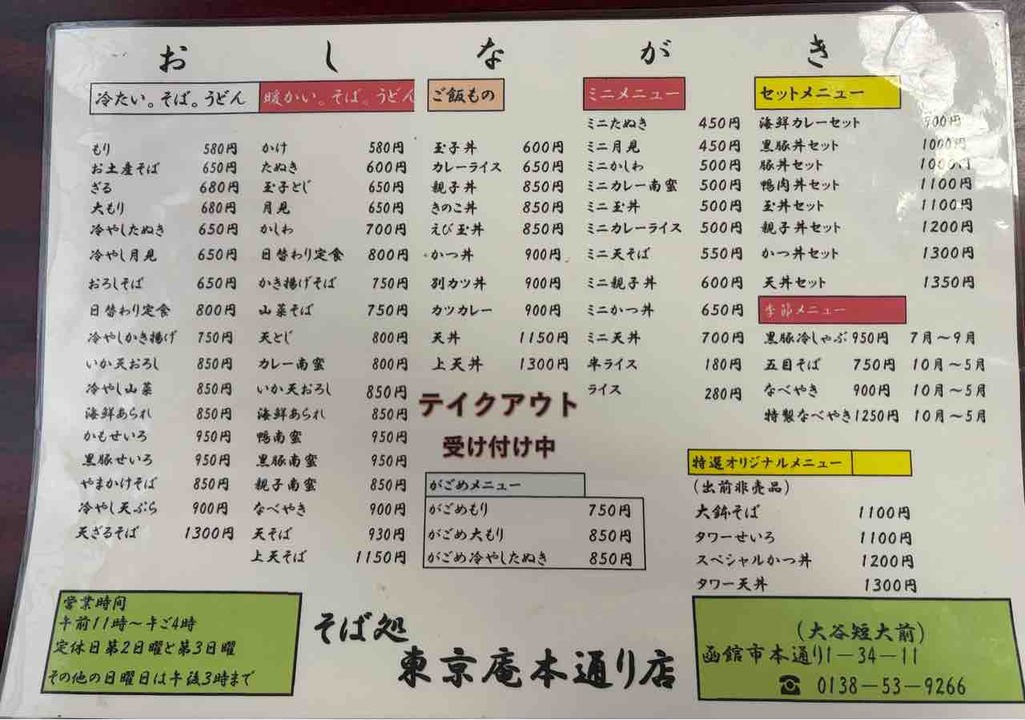 おしながき
冷たい。そば。うどん
もり 580円
お土産そば 650円
ざる 680円
大もり 680円
冷やしたぬき 650円
冷やし月見 650円
おろしそば 650円
日替わり定食 800円
冷やしかき揚げ 750円
いか天おろし 850円
冷やし山菜 850円
海鮮あられ 850円
かもせいろ 950円
黒豚せいろ 950円
やまかけそば 850円
冷やし天ぷら 900円
天ざるそば 1300円
暖かい。そば。うどん
かけ 580円
たぬき 600円
玉子とじ 650円
月見 650円
かしわ 700円
日替わり定食 800円
かき揚げそば 750円
山菜そば 750円
天とじ 800円
カレー南蛮 800円
いか天おろし 850円
海鮮あられ 850円
鴨南蛮 950円
黒豚南蛮 950円
親子南蛮 850円
なべやき 900円
天そば 930円
上天そば 1150円
ご飯もの
玉子丼 600円
カレーライス 650円
親子丼 850円
きのこ丼 850円
えび玉丼 850円
かつ丼 900円
別カツ丼 900円
カツカレー 900円
天丼 1150円
上天丼 1300円
テイクアウト
受け付け中
がごめメニュー
がごめもり 750円
がごめ大もり 850円
がごめ冷やしたぬき 850円
ミニメニュー
ミニたぬき 450円
ミニ月見 450円
ミニかしわ 500円
ミニカレー南蛮 500円
ミニ玉丼 500円
ミニカレーライス 500円
ミニ天そば 550円
ミニ親子丼 600円
ミニかつ丼 650円
ミニ天丼 700円
半ライス 180円
ライス 280円
セットメニュー
海鮮カレーセット 900円
黒豚丼セット 1000円
豚丼セット 1000円
鴨肉丼セット 1100円
玉丼セット 1100円
親子丼セット 1200円
かつ丼セット 1300円
天丼セット 1350円
季節メニュー
黒豚冷しゃぶ 950円 7月～9月
五目そば 750円 10月～5月
なべやき 900円 10月～5月
特製なべやき 1250円 10月～5月
特選オリジナルメニュー
(出前非売品)
大鉢そば 1100円
タワーせいろ 1100円
スペシャルかつ丼 1200円
タワー天丼 1300円
営業時間
午前11時～午ご4時
定休日第2日曜と第3日曜
その他の日曜日は午後3時まで
そば処
東京庵本通り店
(大谷短大前)
函館市本通り1－34－11
☎ 0138－53－9266